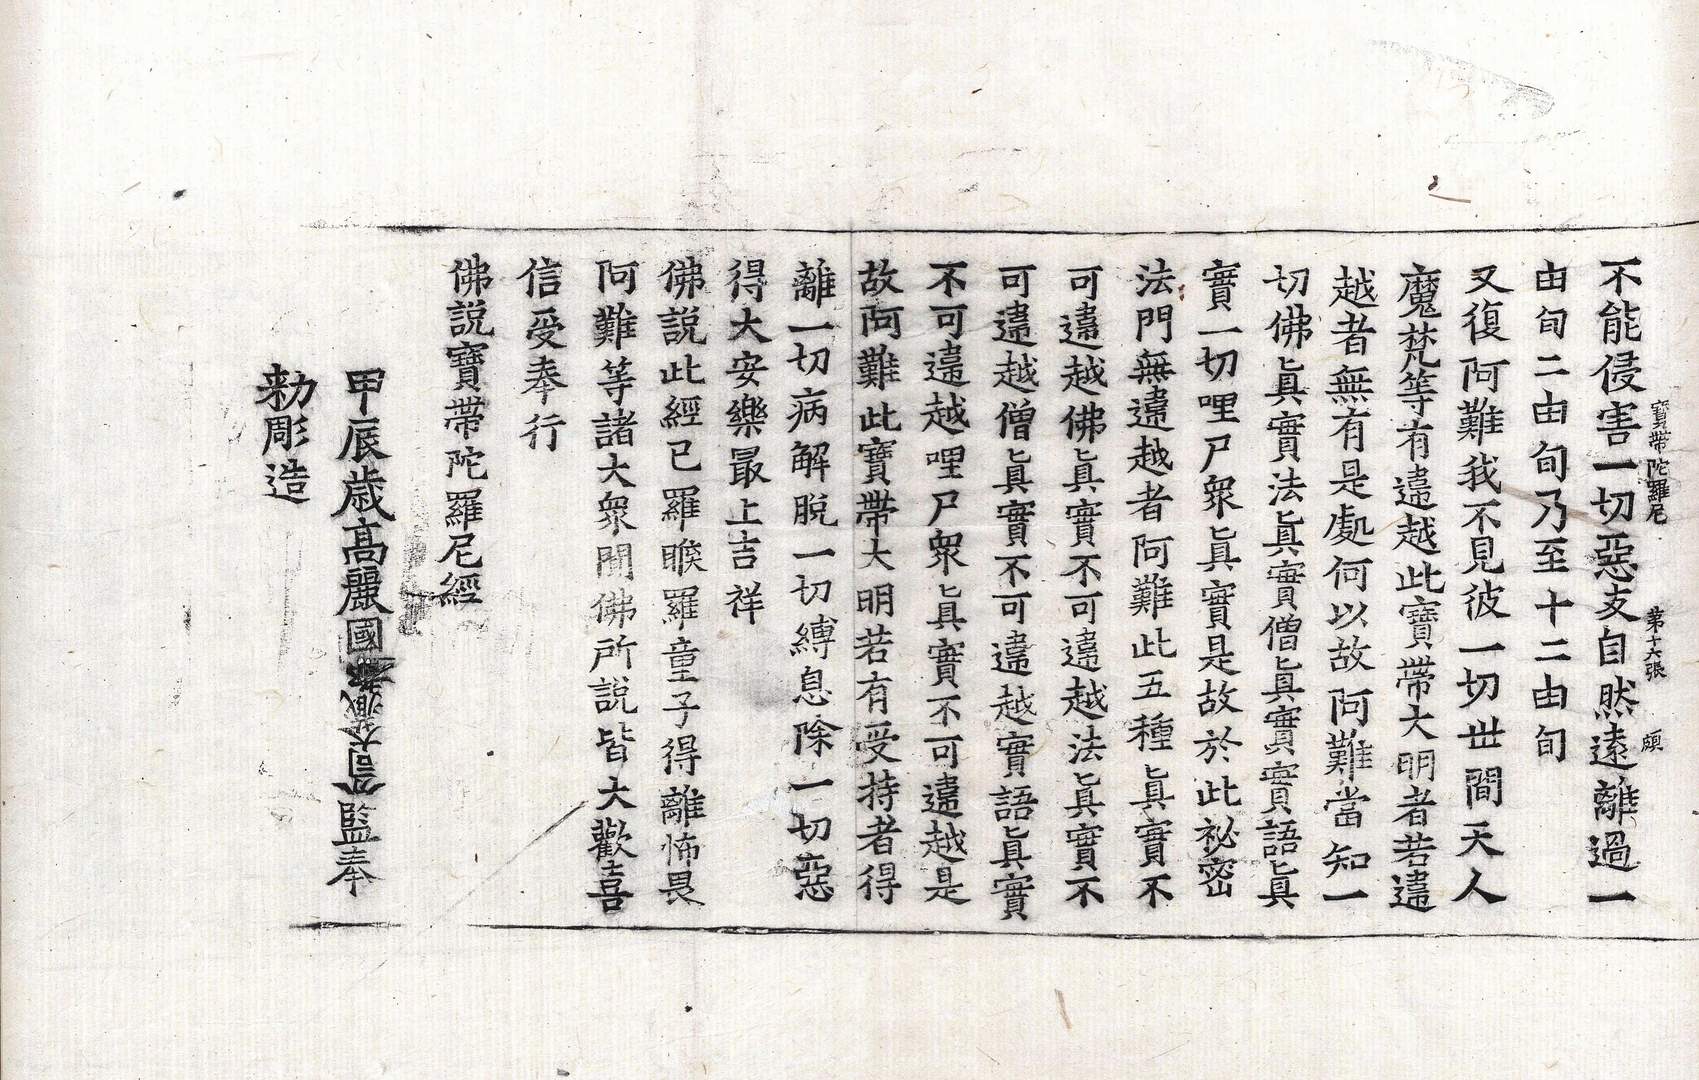 不能侵害一切惡友自然遠離過一
寶帶陀羅尼 第十六張 頙
由旬二由旬乃至十二由旬
又復阿難我不見彼一切世間天人
魔梵等有違越此寶帶大明者若違
越者無有是處何以故阿難當知一
切佛眞實法眞實僧眞實實語眞
實一切哩尸衆眞實是故於此祕密
法門無違越者阿難此五種眞實不
可違越佛眞實不可違越法眞實不
可違越僧眞實不可違越實語眞實
不可違越哩尸衆眞實不可違越是
故阿難此寶帶大明若有受持者得
離一切病解脫一切縛息除一切惡
得大安樂最上吉祥
佛說此經已羅睺羅童子得離怖畏
阿難等諸大衆聞佛所說皆大歡喜
信受奉行
佛說寶帶陀羅尼經
甲辰歲高麗國大藏都監奉
勑彫造